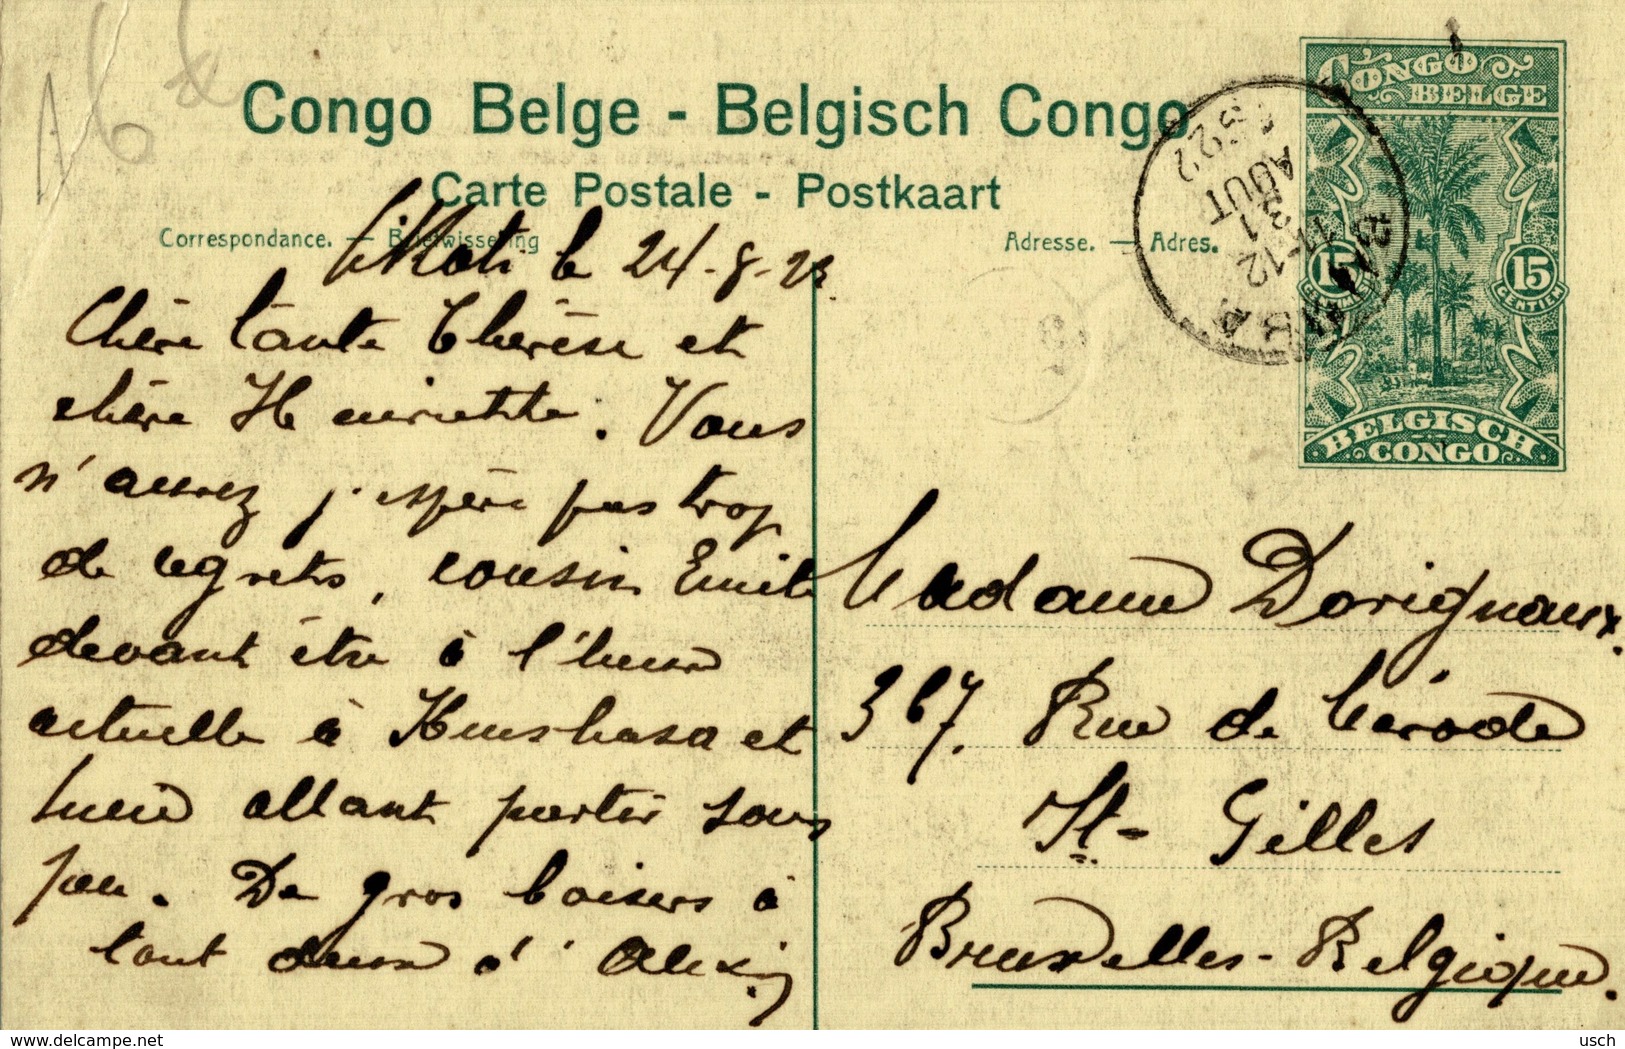 Congo Belge - Belgisch Congo
Carte Postale - Postkaart
Correspondance. — Briefwisseling
Adresse. — Adres.
CONGO
BELGE
15
15
CENTIEM
BELGISCH
CONGO
11-12
31
AOUT
le 24-8-22.
Chère tante Thérèse et
chère Henriette. Vous
n'aurez j'espère pas trop
de regrets, cousin Emile
devant être à l'heure
actuelle à Kinshasa et
allant partir sous
peu. De gros baisers à
tout deux d' Alexis
Madame Dorignaux.
367. Rue de Mérode
St- Gilles
Bruxelles - Belgique.
delcampe.net
usch